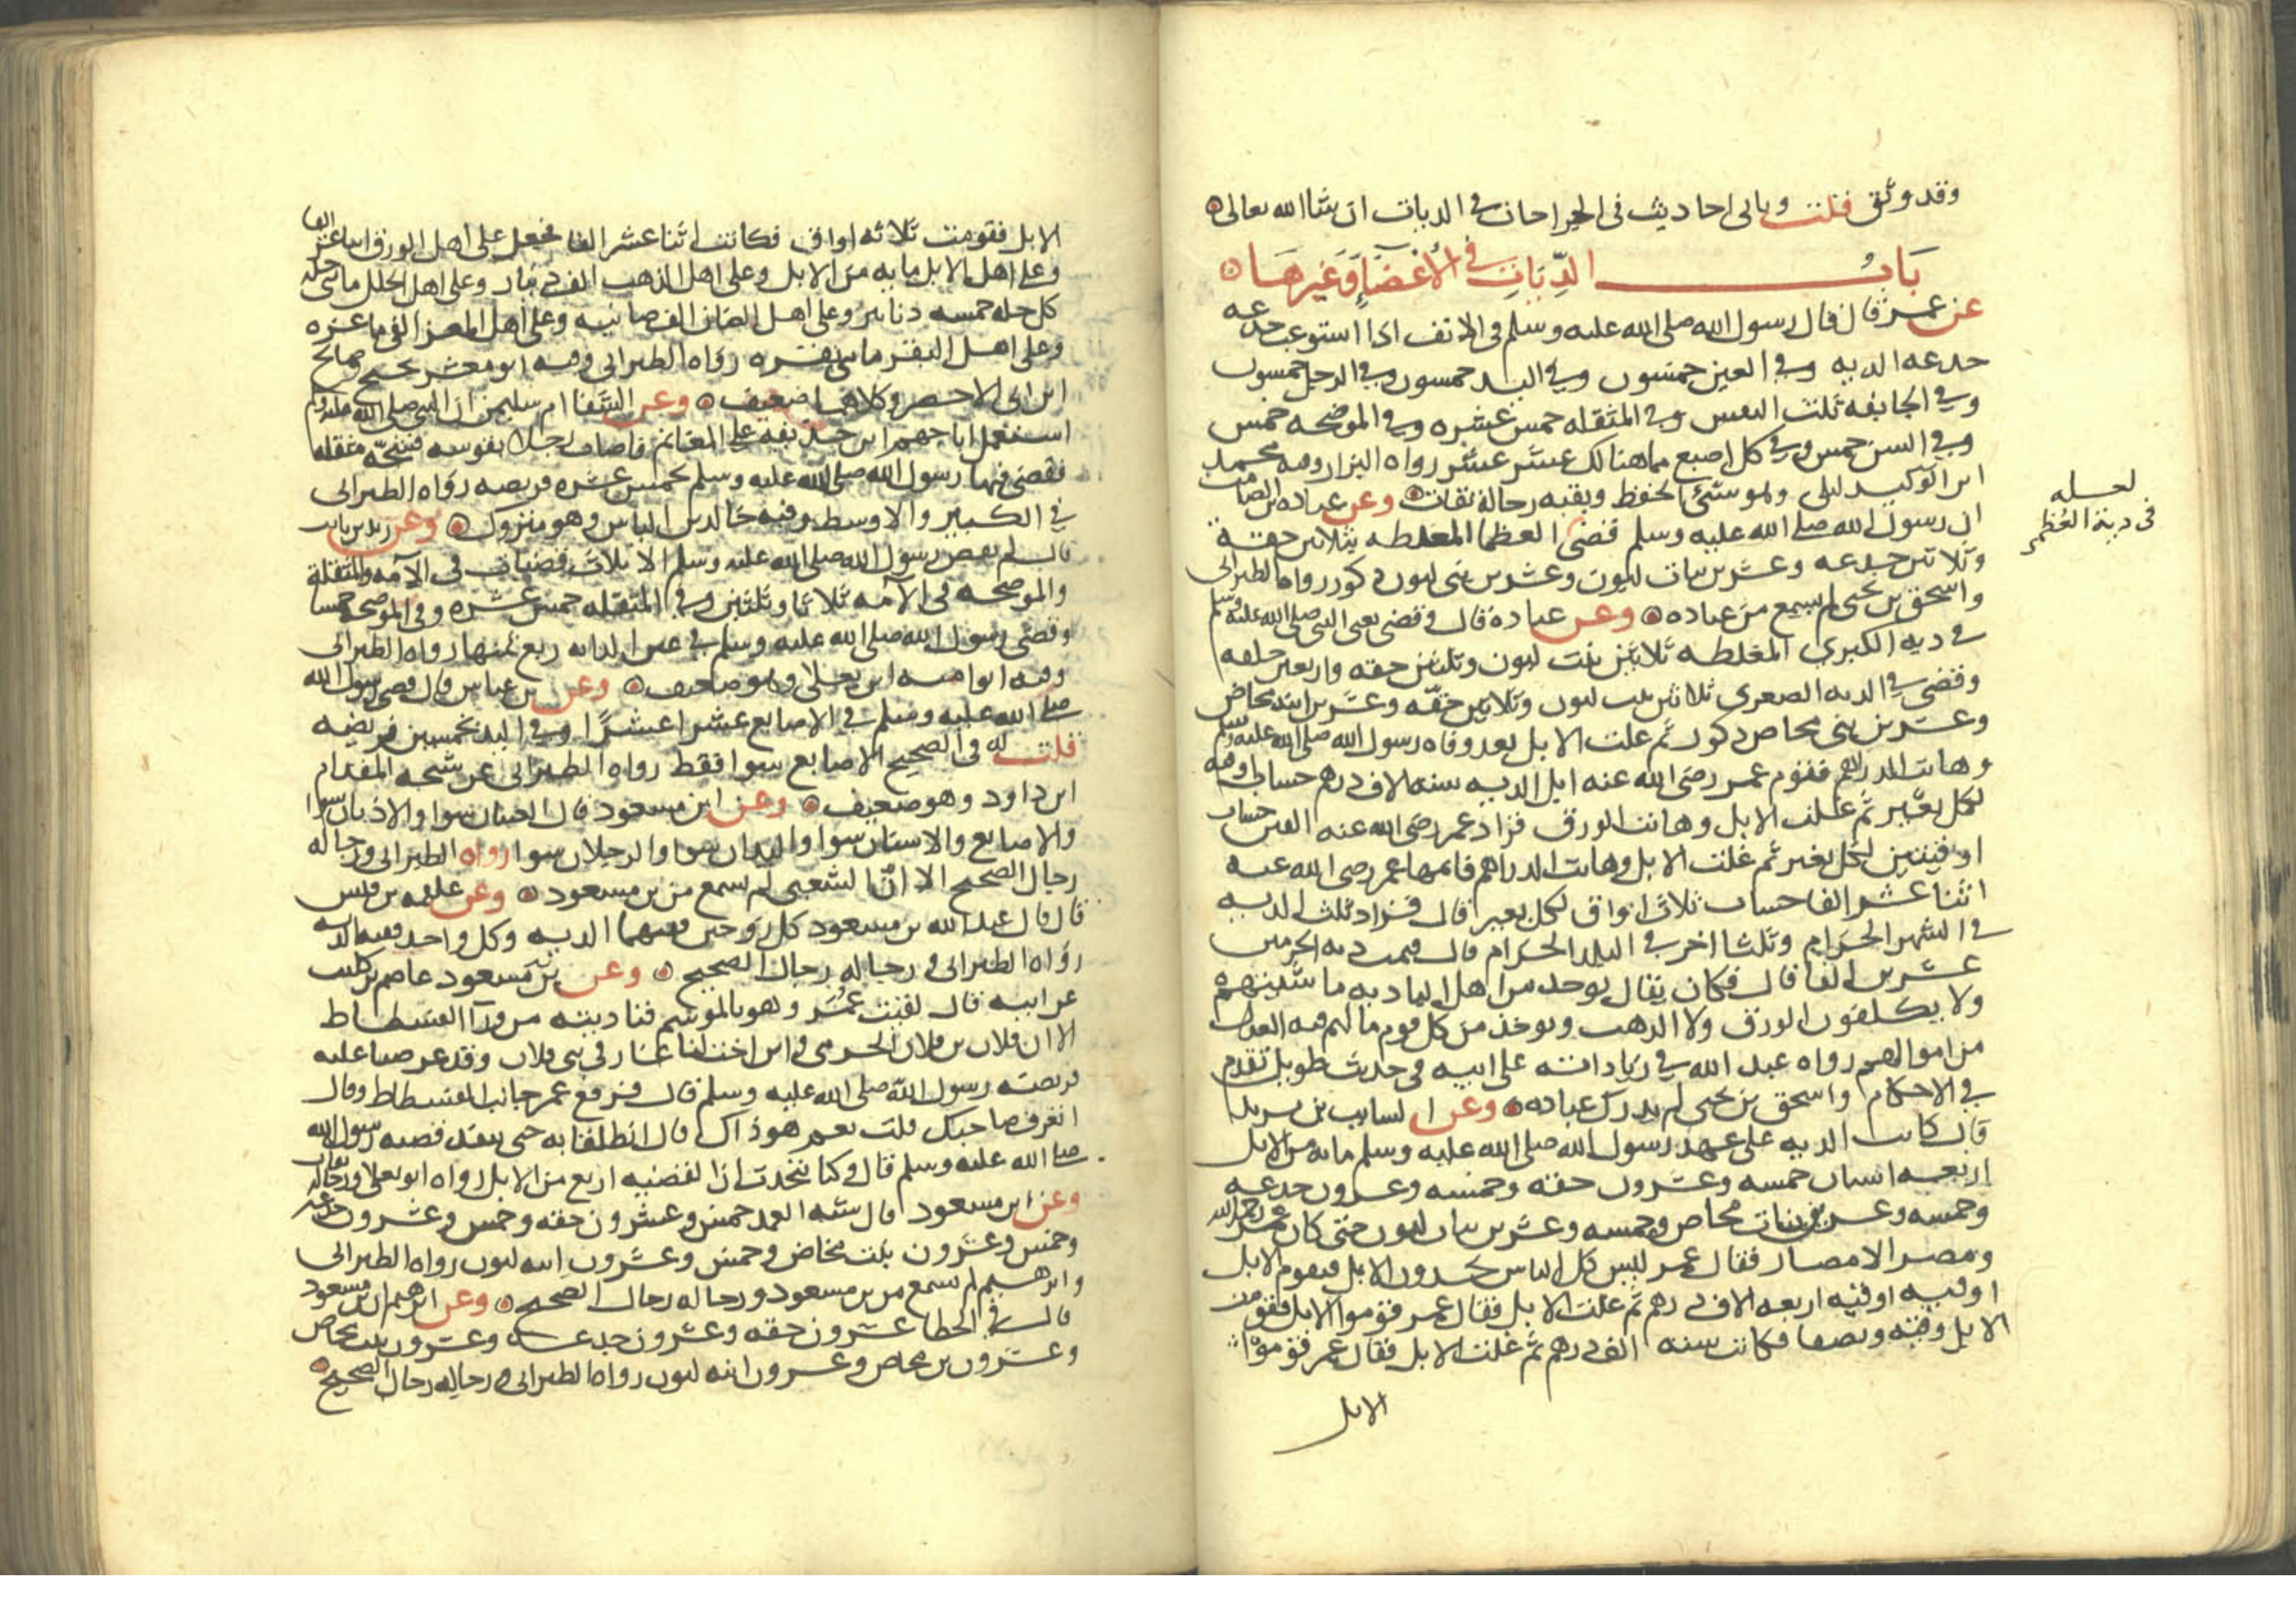 وقد وثق قلت وياتى احاديث فى الجراحات فى الديات ان شا الله تعالى
بَابُ الدِّيَاتِ فى الأعْضَاءِ وَغَيرهَا
عن عمر قال قال رسول الله صلى الله عليه وسلم فى الانف اذا استوعب جدعه
جدعه الديه وفي العين خمسون وفي اليد خمسون وفي الرجل خمسون
وفي الجايفه ثلث النفس وفي المنقله خمس عشره وفي الموضحه خمس
وفي السن خمس وفي كل اصبع مما هنالك عشر عشر رواه البزار وفيه محمد
ابن ليلى وهو سَيّئ الحفظ وبقيه رجاله ثقات وعن عباده بن الصامت
ان رسول الله صلى الله عليه وسلم قضى العظما المغلطه بثلاثين حقة
لعله
فى دية العُظمى
وثلاثين جدعه وعشرين بنات لبون وعشرين بنى لبون ذكور رواه الطبرانى
واسحق بن يحيى لم يسمع من عباده وعن عبادة قال قضى يعنى النبى صلى الله عليه وسلم
في ديه الكبري المغلطه ثلاثين بنت لبون وثلثين حقه واربعين خلفه
وقضى في الديه الصعرى ثلاثين بنت لبون وثلاثين حقّه وعشرين ابنه مخاض
وعشرين بنى مخاض ذكور ثم علت الابل بعد وفاه رسول الله صلى الله عليه وسلم
وهانت الدراهم فقوم عمر رضى الله عنه ابل الديه سته الاف درهم حساب اوقيه
لكل بعير ثم غلت الابل وهانت الورق فزاد عمر رضى الله عنه الفين حساب
اوقيتين لكل بعير ثم غلت الابل وهانت الدراهم فاتمها عمر رضى الله عنه
اثنا عشر الفا حساب ثلاث اواق لكل بعير قال فزاد ثلث الديه
في الشهر الحرام وثلثا اخر في البلد الحرام قال فتمت ديه الحرمين
عشرين الفا قال فكان يقال يوخذ من اهل الباديه ماشيتهم
ولا يكلفون الورق ولا الدهب ويوخذ من كل قوم مالهم فيه العدل
من اموالهم رواه عبد الله في زياداته على ابيه فى حديث طويل تقدم
في الاحكام واسحق بن يحيى لم يدرك عباده وعن السايب بن يزيد
قال كانت الديه على عهد رسول الله صلى الله عليه وسلم مايه من الابل
اربعه اسنان خمسه وعشرون حقه وخمسه وعشرون جدعه
وخمسه وعشرين بنات مخاض وخمسه وعشرين بنات لبون حتى كان عمر رحمه الله
ومصر الامصار فقال عمر ليس كل الناس يجدون الابل فيقوم الابل
اوقيه اوقيه اربعه الاف درهم ثم غلت الابل فقال عمر قوموا الابل فقومت
الابل وقيّه ونصفا فكانت سته الف درهم ثم غلت الابل فقال عمر قوموا
الابل
الابل فقومت ثلاثه اواق فكانت اثنا عشر الفا فجعل على اهل الورق اثنا عشر الفا
وعلى اهل الابل مايه من الابل وعلى اهل الذهب الف دينار وعلى اهل الحلل مائتى حله
كل حله خمسه دنانير وعلى اهل الضان الف ضانيه وعلى اهل المعز الفى ماعزه
وعلى اهل البقر مائى بقره رواه الطبرانى وفيه ابو معشر نجيح وصالح
ابن ابى الاخضر وكلاهما ضعيف وعن الشفا ام سليمن ان النبى صلى الله عليه وسلم
استعمل ابا جهم ابن حذيفه على المغانم فاصاب رجلا بقوسه فشجّه منقله
فقضى فيها رسول الله صلى الله عليه وسلم بخمس عشره فريضه رواه الطبرانى
في الكبير والاوسط وفيه خالد بن الياس وهو متروك وعن زيد بن ثابت
قال لم يقض رسول الله صلى الله عليه وسلم الا ثلاث قضيات فى الآمه والمنقلة
والموضحه فى الآمه ثلاثا وثلثين وفي المنقله خمس عشره وفى الموضحه خمسا
وقضى رسول الله صلى الله عليه وسلم في عين الدابه ربع ثمنها رواه الطبرانى
وفيه ابو اميه ابن يعلى وهو ضعيف وعن بن عباس قال قضى رسول الله
صلى الله عليه وسلم في الاصابع عشرا عشرًا وفي اليد بخمسين فريضه
قلت له فى الصحيح الاصابع سوا فقط رواه الطبرانى عن شيخه المقدام
ابن داود وهو ضعيف وعن ابن مسعود قال العينان سوا والاذنان سوا
والاصابع والاسنان سوا واليدان سوا والرجلان سوا رواه الطبرانى ورجاله
رجال الصحيح الا انّ الشعبى لم يسمع من بن مسعود وعن علقمه بن قيس
قال قال عبد الله بن مسعود كل زوجين ففيهما الديه وكل واحد ففيه الديه
رواه الطبرانى ورجاله رجال الصحيح وعن بن مسعود عاصم بن كليب
عن ابيه قال لقيت عُمر وهو بالموسم فناديته من ورآ الفسطاط
الا ان فلان بن فلان الجرمى وابن اخت لنا عان في بنى فلان وقد عرضنا عليه
فريضه رسول الله صلى الله عليه وسلم قال فرفع عمر جانب الفسطاط وقال
اتعرف صاحبك قلت نعم هو ذاك قال انطلقا به حتى ينفذ قضيه رسول الله
صلى الله عليه وسلم قال وكنا نتحدث ان القضيه اربع من الابل رواه ابو يعلى ورجاله ثقات
وعن ابن مسعود قال شبه العمد خمس وعشرون حقه وخمس وعشرون جدعه
وخمس وعشرون بنت مخاض وخمس وعشرون ابنه لبون رواه الطبرانى
وابرهيم لم يسمع من بن مسعود ورجاله رجال الصحيح وعن ابرهيم ان بن مسعود
قال في الخطا عشرون حقه وعشرون جدعه وعشرون بنت مخاض
وعشرون بن مخاض وعشرون ابنه لبون رواه الطبرانى ورجاله رجال الصحيح